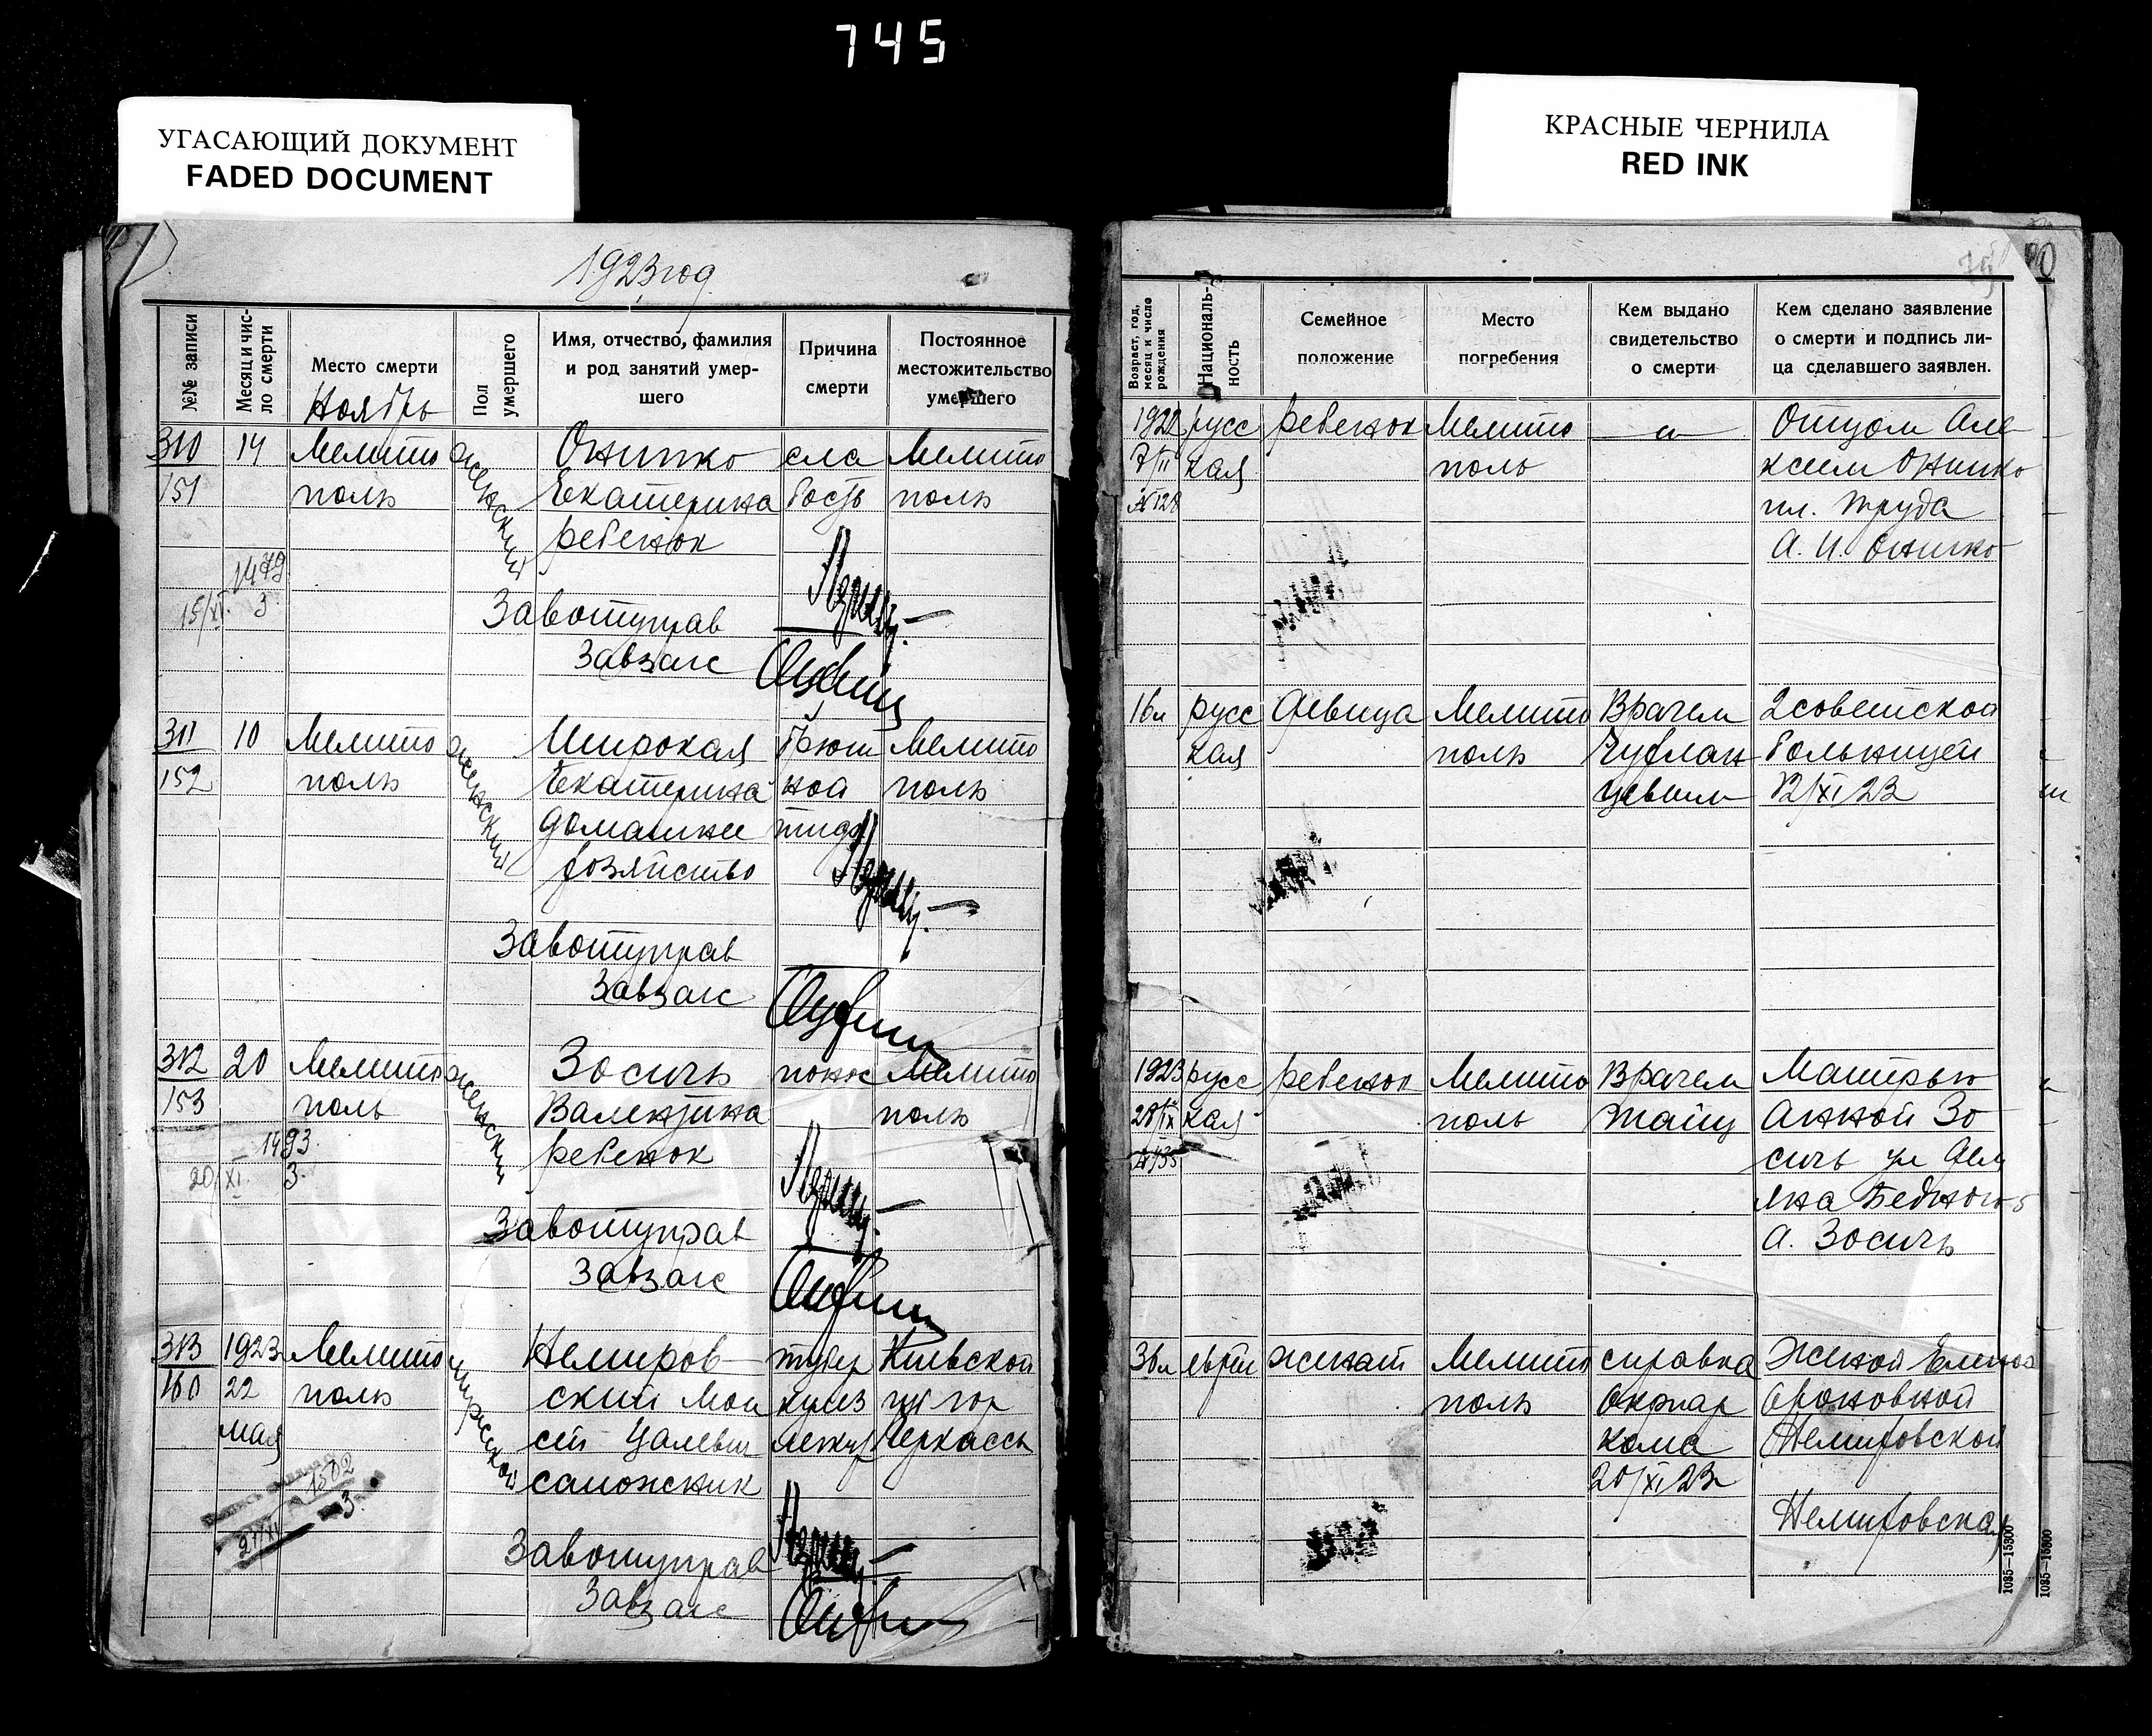 745
УГАСАЮЩИЙ ДОКУМЕНТ
FADED DOCUMENT
КРАСНЫЕ ЧЕРНИЛА
RED INK
1923 год
№№ записи
Месяц и чис-
ло смерти
Место смерти
Ноябрь
Пол
умершего
Имя, отчество, фамилия
и род занятий умер-
шего
Причина
смерти
Постоянное
местожительство
умершего
310
151
14
Мелито
поль
женский
Онипко
Екатерина
ребенок
сла
бость
Мелито
поль
1479
15/XI 3.
Завотуправ
Завзагс
311
152
10
Мелито
поль
женский
Широкая
Екатерина
домашнее
хозяйство
брюш
ной
тиф
Мелито
поль
Завотуправ
Завзагс
312
153
20
Мелито
поль
женский
Зосичь
Валентина
ребенок
понос
Мелито
поль
1493
20/XI 3.
Завотуправ
Завзагс
313
160
1923
22
мая
Мелито
поль
мужской
Немиров
ский Мои
сей
сапожник
тубер
кулез
легкух
Киевской
гу гор
Черкассы
1502
21/XI 3.
Завотуправ
Завзагс
75
Возраст, год,
месяц и число
рождения
Националь-
ность
Семейное
положение
Место
погребения
Кем выдано
свидетельство
о смерти
Кем сделано заявление
о смерти и подпись ли-
ца сделавшего заявлен.
1922
7/II
№ 128
русс
кая
ребенок
Мелито
поль
Отцом Але
ксеем Онипко
пл. Труда
А. И. Онипко
16 л
русс
кая
девица
Мелито
поль
Врачем
2 советской
больницей
12/XI 23
1923
28/IX
русс
кая
ребенок
Мелито
поль
Врачем
Матерью
Анной Зо
сичь ул Дем
яна Бедного 5
А. Зосичь
36 л
еврей
женат
Мелито
поль
справка
Окрнар
кома
20/XI 23
Женой Еленой
Ароновной
Немировской
Немировская
1085—15300
1085—15300